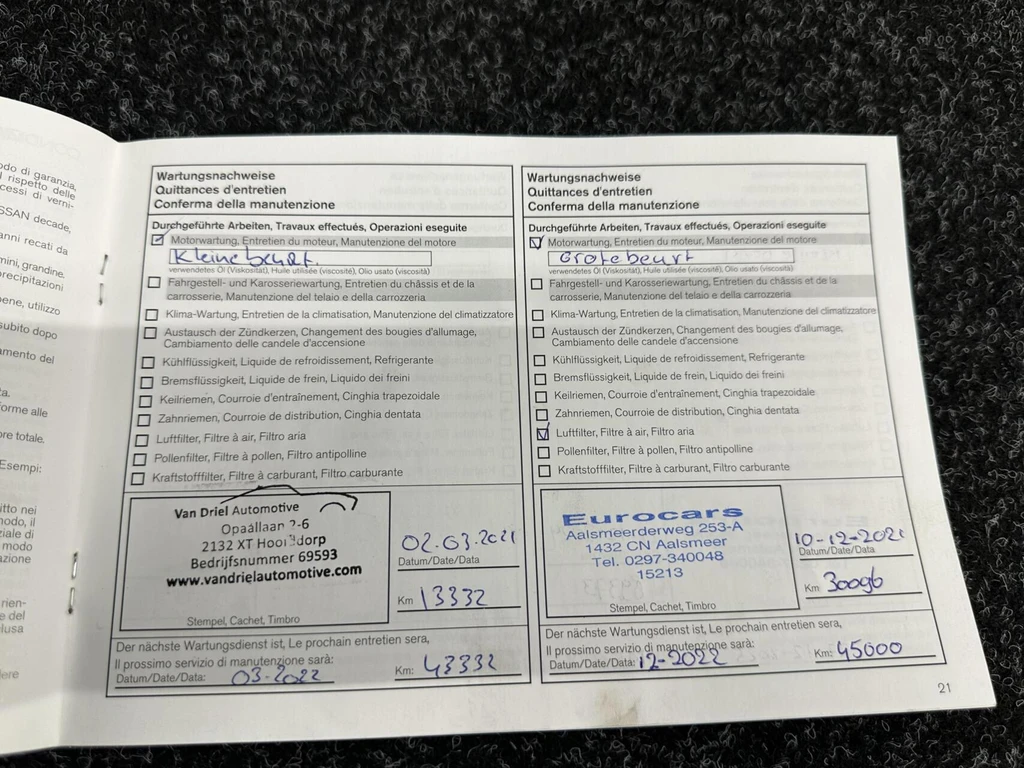 odo di garanzia,
l rispetto delle
cessi di verni-
SSAN decade,
anni recati da
mini, grandine,
precipitazioni
ene, utilizzo
subito dopo
amento del
ta.
forme alle
ore totale.
Esempi:
itto nei
nodo, il
ziale di
modo
azione
rien-
e del
lusa
ere
Wartungsnachweise
Quittances d'entretien
Conferma della manutenzione
Durchgeführte Arbeiten, Travaux effectués, Operazioni eseguite
Motorwartung, Entretien du moteur, Manutenzione del motore
Kleine beurt.
verwendetes Öl (Viskosität), Huile utilisée (viscosité), Olio usato (viscosità)
Fahrgestell- und Karosseriewartung, Entretien du châssis et de la
carrosserie, Manutenzione del telaio e della carrozzeria
Klima-Wartung, Entretien de la climatisation, Manutenzione del climatizzatore
Austausch der Zündkerzen, Changement des bougies d'allumage,
Cambiamento delle candele d'accensione
Kühlflüssigkeit, Liquide de refroidissement, Refrigerante
Bremsflüssigkeit, Liquide de frein, Liquido dei freini
Keilriemen, Courroie d'entraînement, Cinghia trapezoidale
Zahnriemen, Courroie de distribution, Cinghia dentata
Luftfilter, Filtre à air, Filtro aria
Pollenfilter, Filtre à pollen, Filtro antipolline
Kraftstofffilter, Filtre à carburant, Filtro carburante
Van Driel Automotive
Opaallaan 2-6
2132 XT Hoofddorp
Bedrijfsnummer 69593
www.vandrielautomotive.com
Stempel, Cachet, Timbro
02.03.2021
Datum/Date/Data
Km 13332
Der nächste Wartungsdienst ist, Le prochain entretien sera,
Il prossimo servizio di manutenzione sarà:
Datum/Date/Data: 03-2022 Km: 43332
Wartungsnachweise
Quittances d'entretien
Conferma della manutenzione
Durchgeführte Arbeiten, Travaux effectués, Operazioni eseguite
Motorwartung, Entretien du moteur, Manutenzione del motore
Grote beurt
verwendetes Öl (Viskosität), Huile utilisée (viscosité), Olio usato (viscosità)
Fahrgestell- und Karosseriewartung, Entretien du châssis et de la
carrosserie, Manutenzione del telaio e della carrozzeria
Klima-Wartung, Entretien de la climatisation, Manutenzione del climatizzatore
Austausch der Zündkerzen, Changement des bougies d'allumage,
Cambiamento delle candele d'accensione
Kühlflüssigkeit, Liquide de refroidissement, Refrigerante
Bremsflüssigkeit, Liquide de frein, Liquido dei freini
Keilriemen, Courroie d'entraînement, Cinghia trapezoidale
Zahnriemen, Courroie de distribution, Cinghia dentata
Luftfilter, Filtre à air, Filtro aria
Pollenfilter, Filtre à pollen, Filtro antipolline
Kraftstofffilter, Filtre à carburant, Filtro carburante
Eurocars
Aalsmeerderweg 253-A
1432 CN Aalsmeer
Tel. 0297-340048
15213
Stempel, Cachet, Timbro
10-12-2021
Datum/Date/Data
Km 30096
Der nächste Wartungsdienst ist, Le prochain entretien sera,
Il prossimo servizio di manutenzione sarà:
Datum/Date/Data: 12-2022 Km: 45000
21